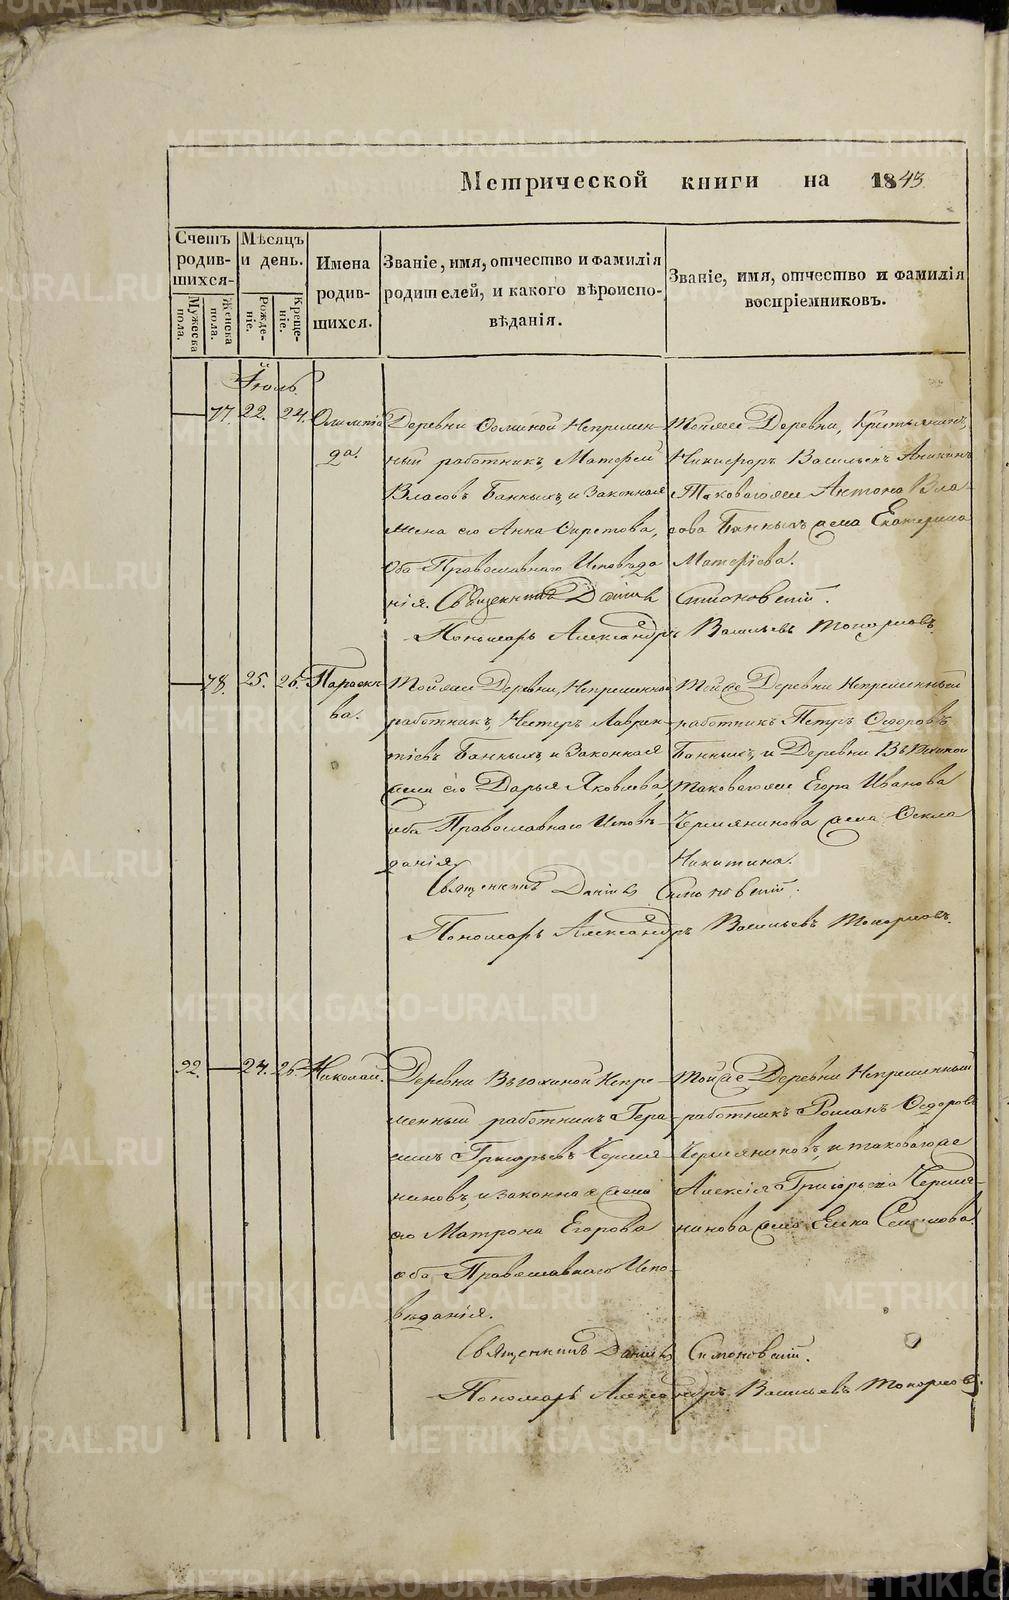 METRIKI.GASO-URAL.RU
Метрической книги на 1843.
Счетъ родив-шихся.
Мѣсяцъ и день.
Имена родив-шихся.
Званіе, имя, отчество и фамилія родителей, и какого вѣроиспо-вѣданія.
Званіе, имя, отчество и фамилія воспріемниковъ.
Мужеска пола.
Женска пола.
Рожде-ніе.
Креще-ніе.
Іюль.
— 77. 22. 24. Олимпіа
да.
Деревни Непремен-
ный работникъ, Матѳей
Власовъ Банныхъ, и законная
жена его Анна
оба Православнаго Исповѣда
нія. Священникъ Даніилъ Симоновскій.
Пономарь Александръ Васильевъ Топорковъ.
Тойже Деревни, Крестьянинъ,
Никифоръ Васильевъ Аникинъ
Таковагоже Антона Вла-
сова Банныхъ жена Екатерина
Матѳіева.
— 78. 25. 26. Параске
ва.
Тойже Деревни, Непременный
работникъ, Нестеръ Лаврен-
тіевъ Банныхъ, и Законная
жена его Дарья Яковлева,
оба Православнаго Исповѣ-
данія.
Священникъ Даніилъ Симоновскій.
Пономарь Александръ Васильевъ Топорковъ.
Тойже Деревни Непременный
работникъ Петръ Ѳедоровъ
Банныхъ, и Деревни
таковагоже Егора Иванова
Чермянинова жена Ѳекла
Никитина.
92. — 24. 26. Николай.
Деревни Непре-
менный работникъ Гера
симъ Григорьевъ Чермя-
ниновъ, и законная жена
его Матрона Егорова
оба Православнаго Испо-
вѣданія.
Священникъ Даніилъ Симоновскій.
Пономарь Александръ Васильевъ Топорковъ.
Тойже Деревни Непременный
работникъ Романъ Ѳедоровъ
Чермяниновъ, и таковагоже
Алексія Григорьева Чермя-
нинова жена Елена Семенова.